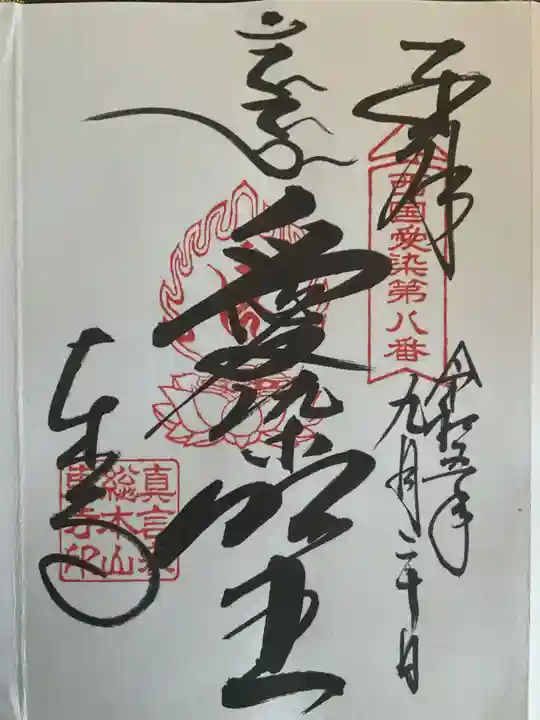 奉拝
西国愛染第八番
令和五年
九月二十日
愛染明王
東寺
真言宗
総本山
東寺印